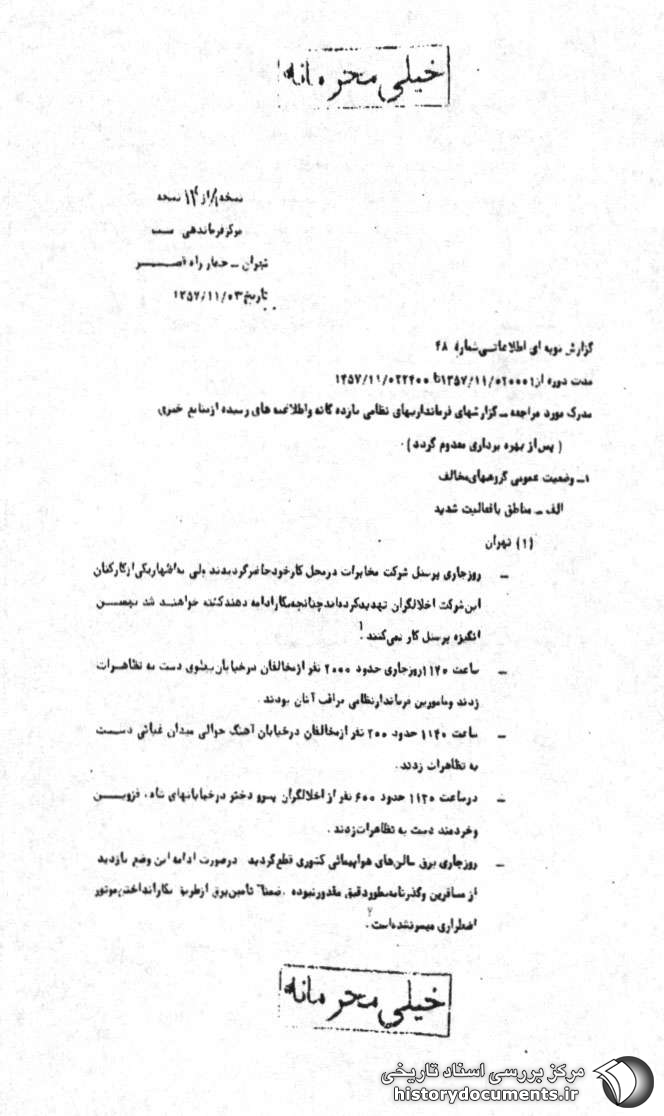 خیلی محرمانه
نسخه از ۱۲ نسخه
مرکز فرماندهی
تهران ـ چهار راه قصر
تاریخ ۱۳۵۷/۱۱/۰۳
گزارش نوبه ای اطلاعاتی شماره ۴۸
مدت دوره از ۱۳۵۷/۱۱/۰۲۰۰۰۱ تا ۱۳۵۷/۱۱/۰۲۲۴۰۰
مدرک مورد مراجعه ـ گزارشهای فرمانداریهای نظامی یازده گانه و اطلاعیه های رسیده از منابع خبری
( پس از بهره برداری معدوم گردد ) .
۱ـ وضعیت عمومی گروههای مخالف
الف ـ مناطق با فعالیت شدید
(۱) تهران
ـ روز جاری پرسنل شرکت مخابرات در محل کار خود حاضر گردیدند ولی به اظهار یکی از کارکنان
این شرکت اخلالگران تهدید کرده‌اند چنانچه بکار ادامه دهند کشته خواهند شد بهمین
انگیزه پرسنل کار نمی‌کنند .۱
ـ ساعت ۱۱۲۰ روز جاری حدود ۲۰۰۰ نفر از مخالفان در خیابان پهلوی دست به تظاهرات
زدند و مامورین فرماندار نظامی مراقب آنان بودند .
ـ ساعت ۱۱۴۰ حدود ۲۰۰ نفر از مخالفان در خیابان آهنگ حوالی میدان غیاثی دست
به تظاهرات زدند .
ـ در ساعت ۱۱۳۰ حدود ۶۰۰ نفر از اخلالگران پسر و دختر در خیابانهای شاه ، قزوین
و خردمند دست به تظاهرات زدند .
ـ روز جاری برق سالن‌های هواپیمائی کشوری قطع گردید در صورت ادامه این وضع بازدید
از مسافرین و گذرنامه بطور دقیق مقدور نبوده . ضمناً تامین برق از طریق بکار انداختن موتور
اضطراری میسر نشده است .۲
خیلی محرمانه
مرکز بررسی اسناد تاریخی
historydocuments.ir